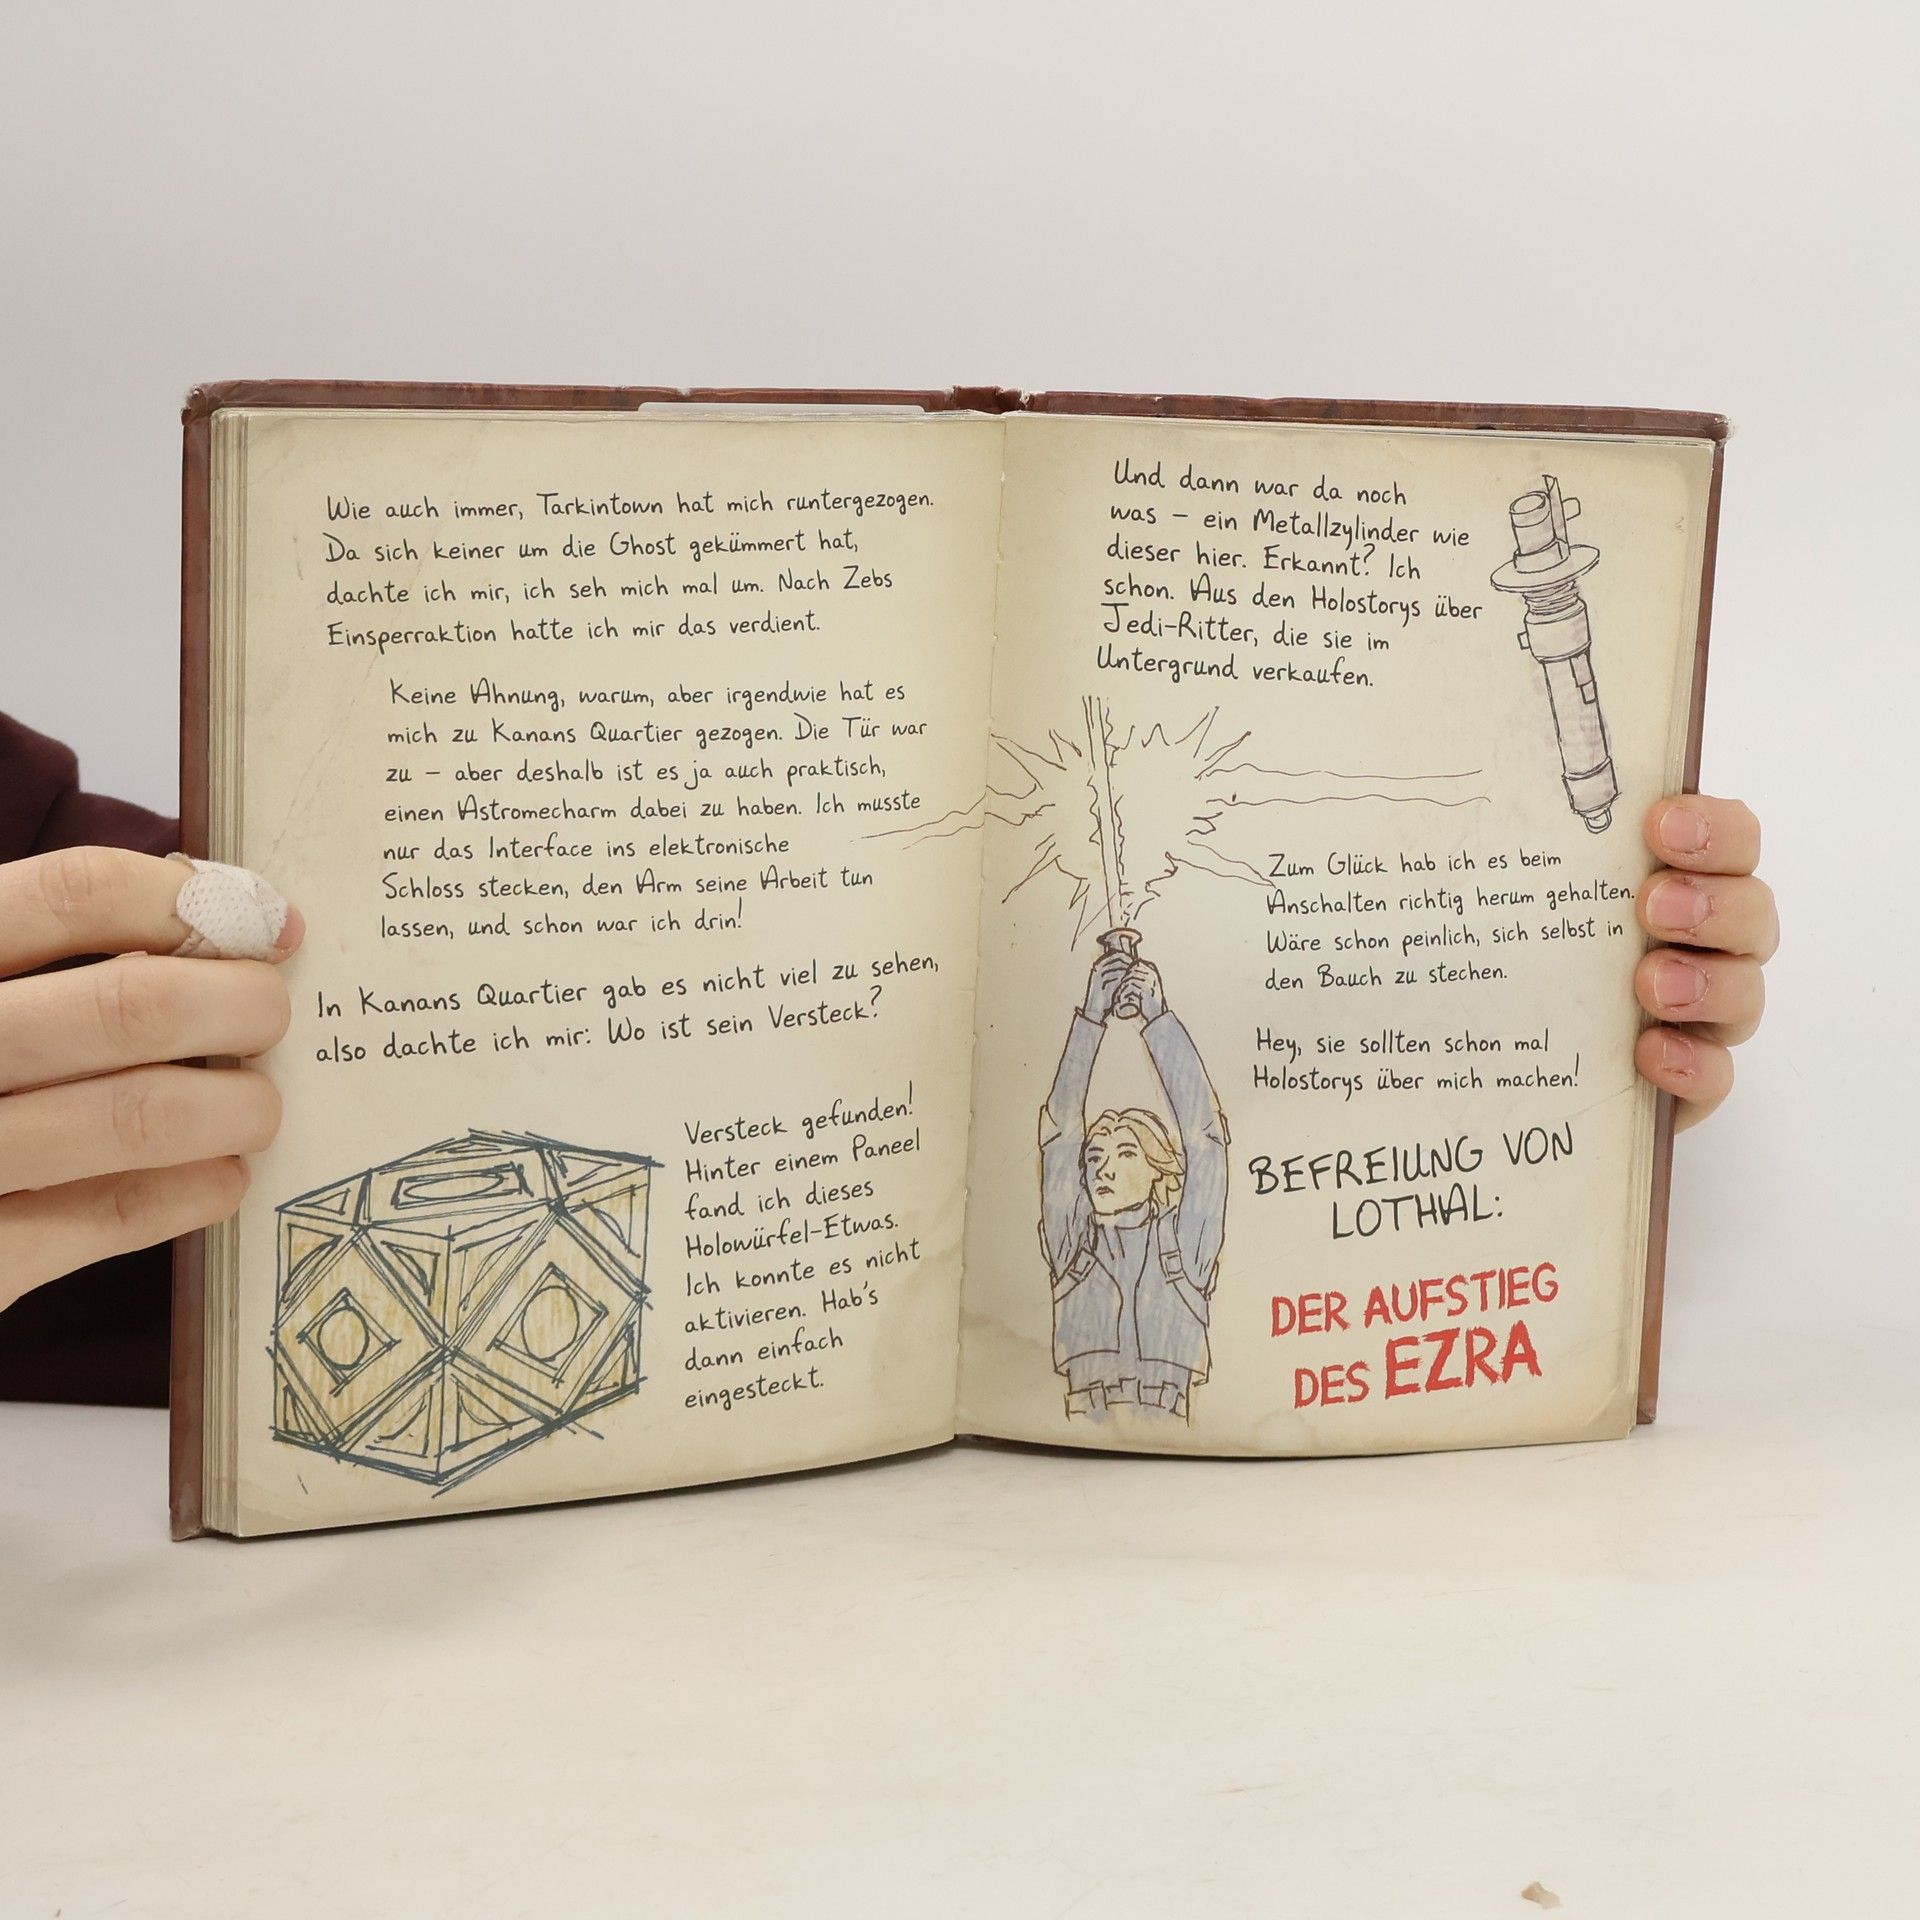 Wie auch immer, Tarkintown hat mich runtergezogen.
Da sich keiner um die Ghost gekümmert hat,
dachte ich mir, ich seh mich mal um. Nach Zebs
Einsperraktion hatte ich mir das verdient.
Keine Ahnung, warum, aber irgendwie hat es
mich zu Kanans Quartier gezogen. Die Tür war
zu – aber deshalb ist es ja auch praktisch,
einen Astromecharm dabei zu haben. Ich musste
nur das Interface ins elektronische
Schloss stecken, den Arm seine Arbeit tun
lassen, und schon war ich drin!
In Kanans Quartier gab es nicht viel zu sehen,
also dachte ich mir: Wo ist sein Versteck?
Versteck gefunden!
Hinter einem Paneel
fand ich dieses
Holowürfel-Etwas.
Ich konnte es nicht
aktivieren. Hab's
dann einfach
eingesteckt.
Und dann war da noch
was – ein Metallzylinder wie
dieser hier. Erkannt? Ich
schon. Aus den Holostorys über
Jedi-Ritter, die sie im
Untergrund verkaufen.
Zum Glück hab ich es beim
Anschalten richtig herum gehalten.
Wäre schon peinlich, sich selbst in
den Bauch zu stechen.
Hey, sie sollten schon mal
Holostorys über mich machen!
BEFREIUNG VON
LOTHAL:
DER AUFSTIEG
DES EZRA